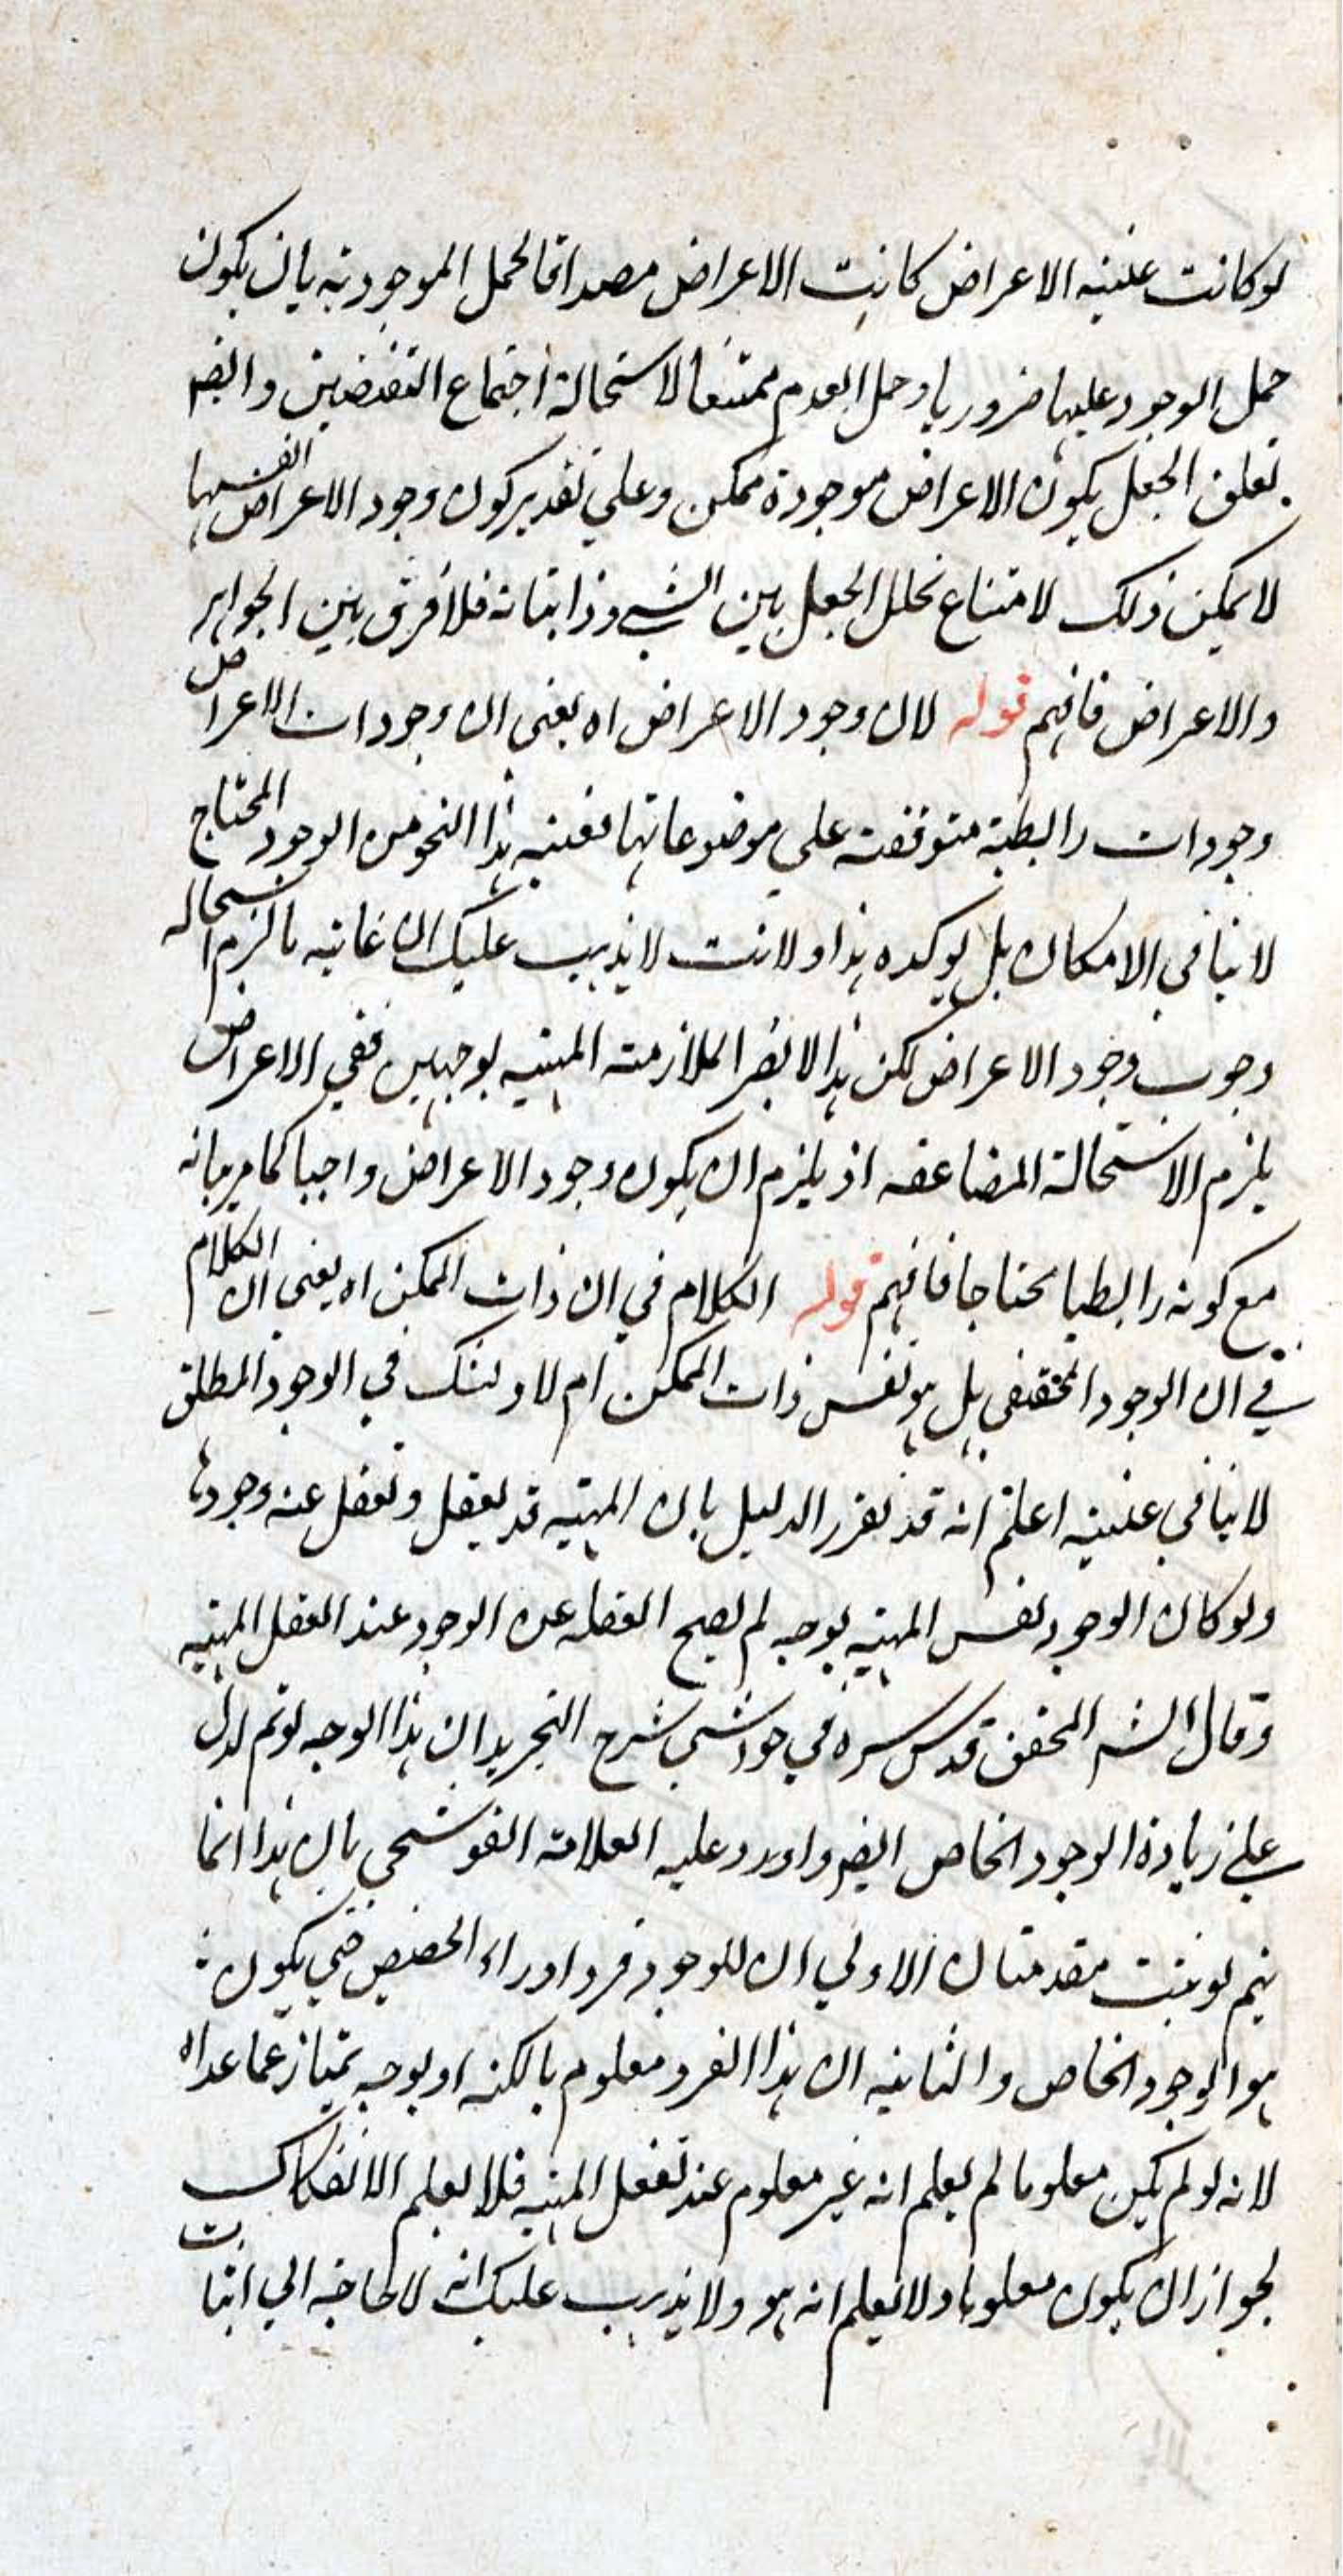 لو كانت عينية الاعراض كانت الاعراض مصداقا لحمل الموجودية بان يكون
حمل الوجود عليها ضروريا وحمل العدم ممتنعا لاستحالة اجتماع النقيضين وايضا
تعلق الجعل بكون الاعراض موجودة ممكن وعلى تقدير كون وجود الاعراض انفسها
لا يمكن ذلك لامتناع تخلل الجعل بين الشيء وذاتياته فلا فرق بين الجواهر
والاعراض فافهم قوله لان وجود الاعراض اه يعني ان وجودات الاعراض
وجودات رابطية متوقفة على موضوعاتها فعينية هذا النحو من الوجود المحتاج
لا ينافي الامكان بل يوكده هذا ولانت لا يذهب عليك ان غايته ما لزم استحالة
وجوب وجود الاعراض لكن هذا لا يضر الملازمة المبنية بوجهين ففي الاعراض
يلزم الاستحالة المضاعفة اذ يلزم ان يكون وجود الاعراض واجبا كما مر بيانه
مع كونه رابطيا محتاجا فافهم قوله الكلام في ان ذات الممكن اه يعني ان الكلام
في ان الوجود الحقيقي بل هو نفس ذات الممكن ام لا والشك في الوجود المطلق
لا ينافي عينية اعلم انه قد يقرر الدليل بان المهية قد يعقل ويغفل عنه وجودها
ولو كان الوجود نفس المهية بوجه لم يصح الغفلة عن الوجود عند العقل المهية
وقال الشـ المحقق قدس سره في حواشي شرح التجريد ان هذا الوجه لو تم لدل
على زيادة الوجود الخاص ايضا واورد عليه العلامة القوشجي بان هذا انما
يتم لو يثبت مقدمتان الاولى ان للوجود فردا وراء الحصص حتى يكون
هو الوجود الخاص والثانية ان هذا الفرد معلوم بالكنه او بوجه يمتاز عما عداه
لانه لو لم يكن معلوما لم يعلم انه غير معلوم عند تعقل المهية فلا يعلم الانفكاك
لجواز ان يكون معلوما ولا يعلم انه هو ولا يذهب عليك انه لا حاجة الى اثبات